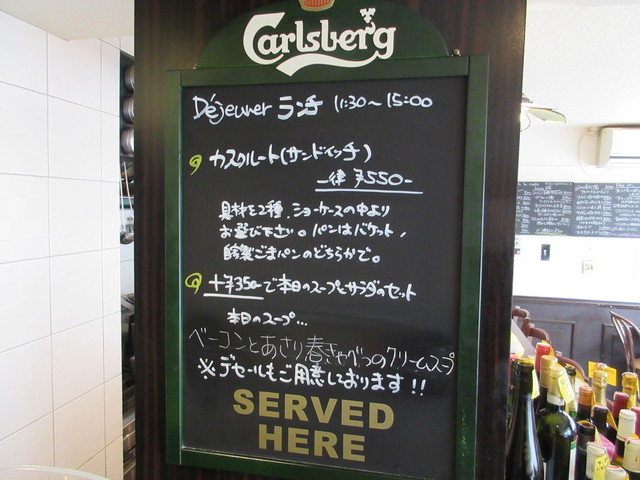 Carlsberg
Déjeuner ランチ 11:30〜15:00
カスクルート(サンドイッチ)
一律 ¥550-
具材を2種、ショーケースの中より
お選び下さい。パンはバケット、
自家製ごまパンのどちらかで。
+¥350-で本日のスープとサラダのセット
本日のスープ…
ベーコンとあさり春きゃべつのクリームスープ
※デセールもご用意しております!!
SERVED
HERE